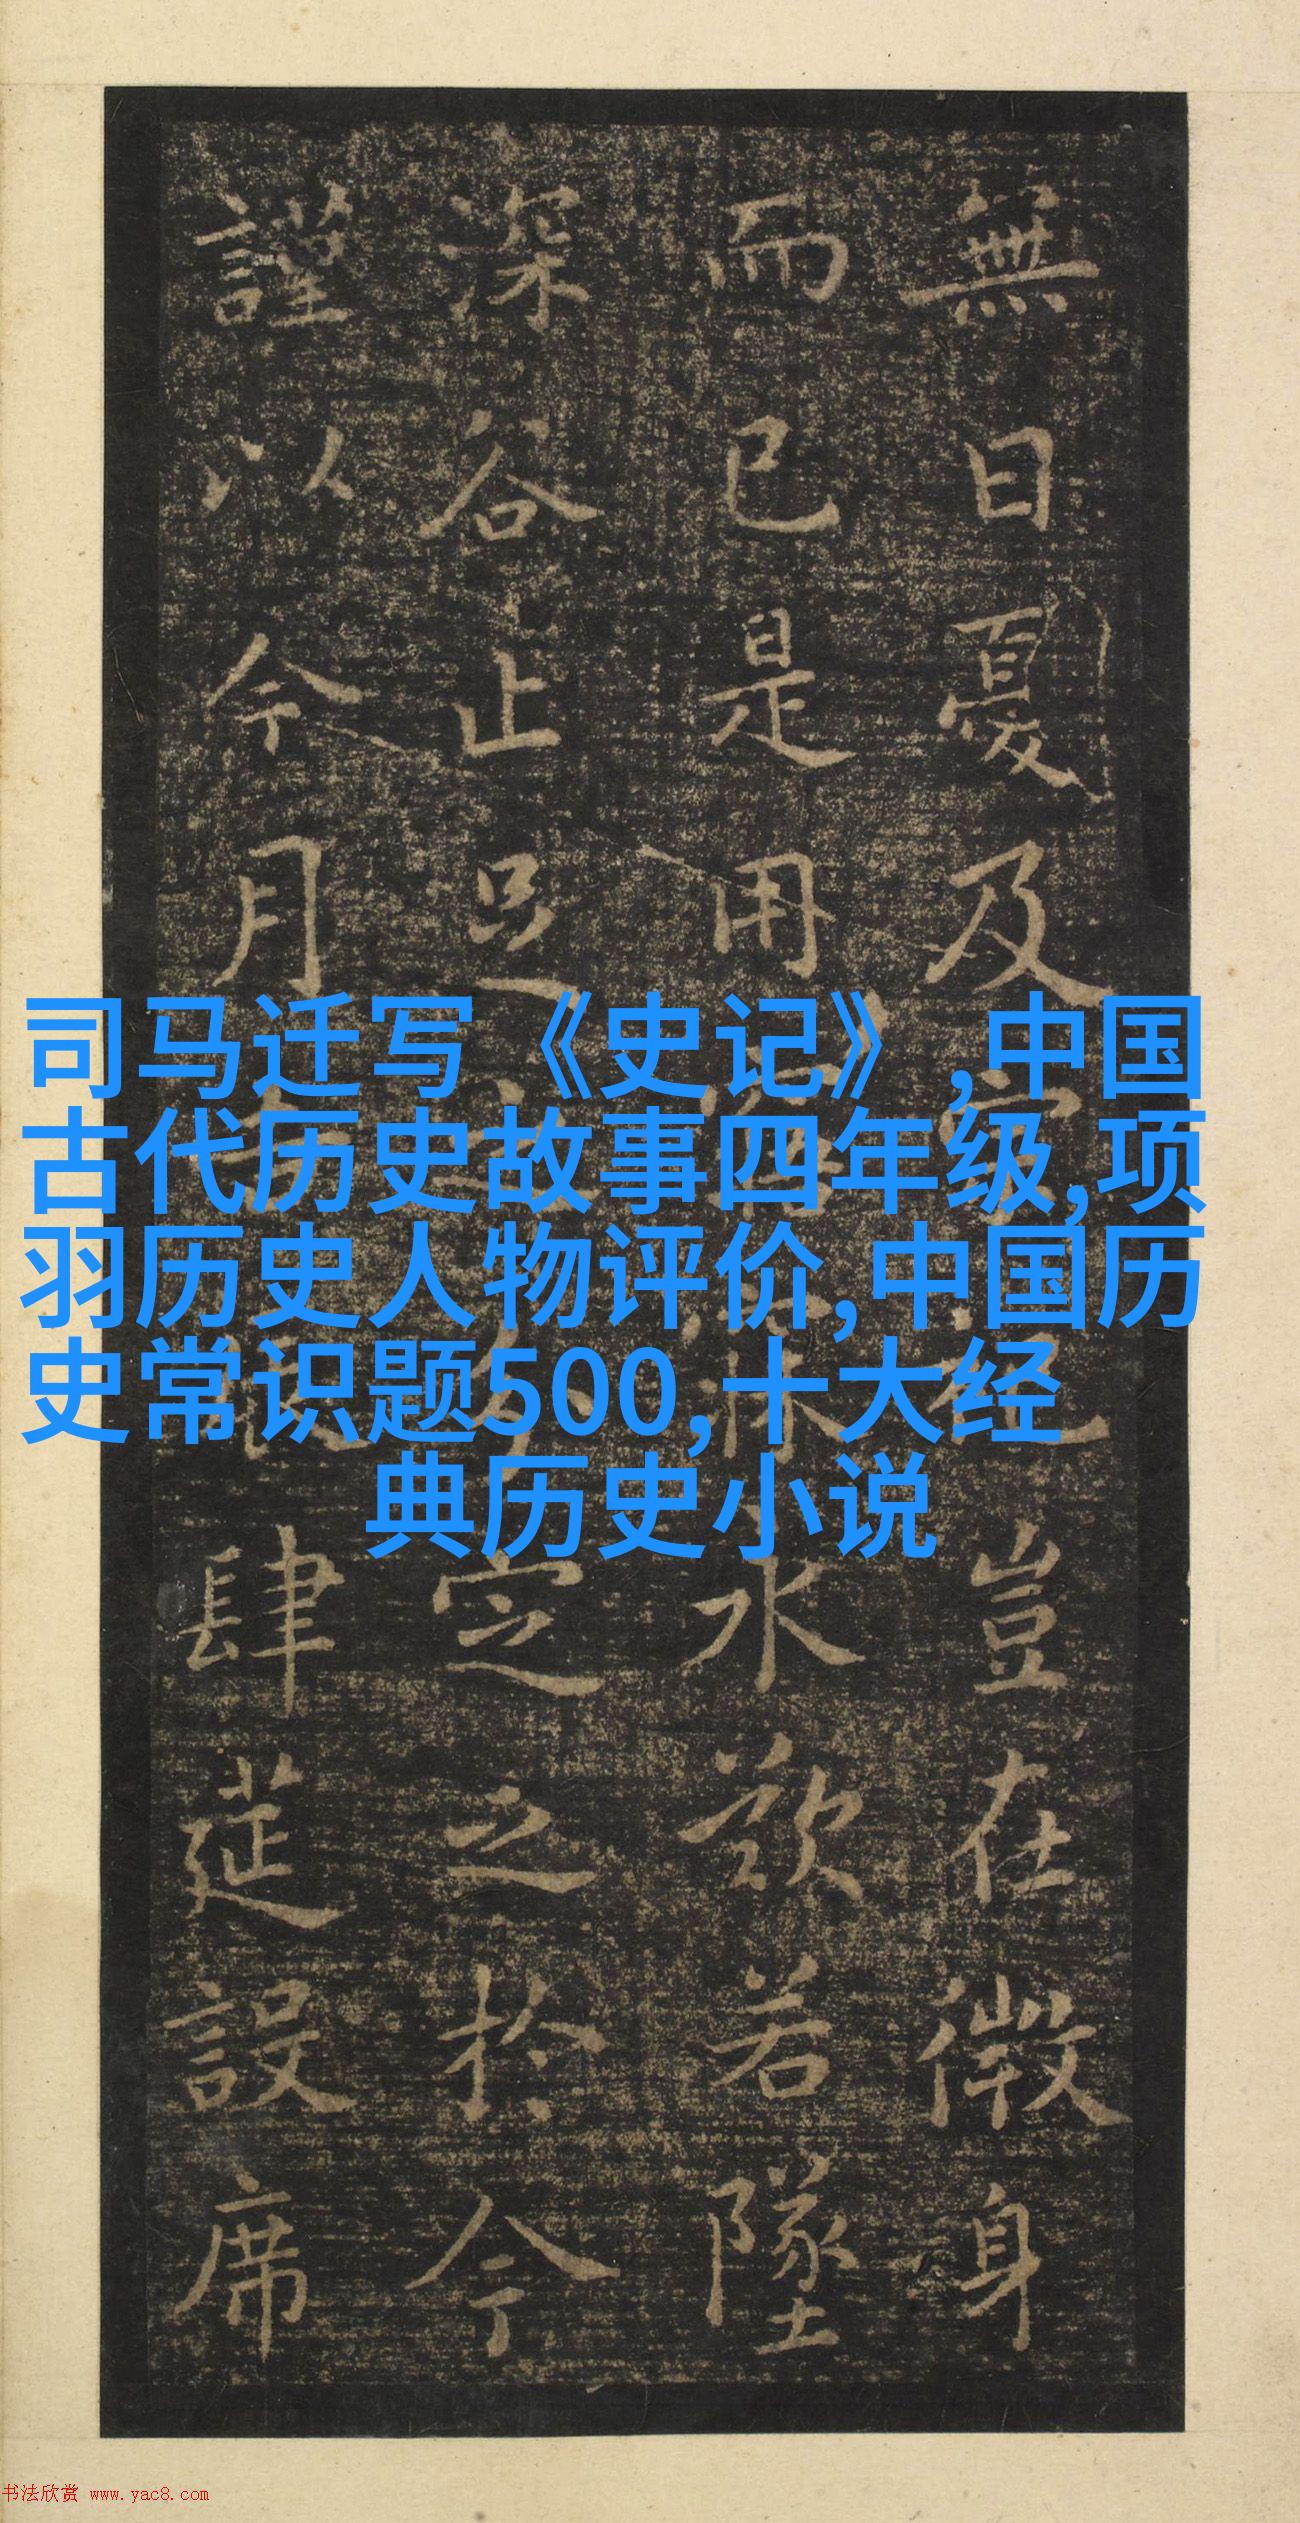 無日憂及宗祀豈在微身
而已是用寤寐永歎若墜
深谷止足之分定之於今
謹以今月吉辰肆筵設席
司马迁写《史记》,中国
古代历史故事四年级,项
羽历史人物评价,中国历
史常识题500,十大经
典历史小说
书法欣赏 www.yac8.com